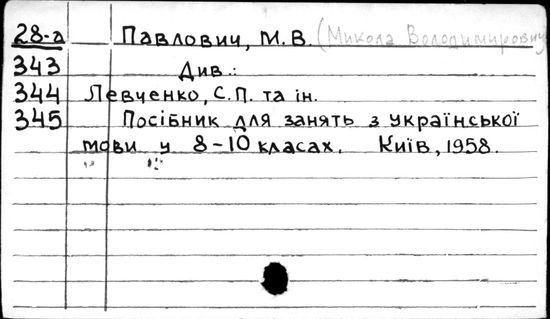 28-а Павлович, М.В. (Микола Володимирович)
343 Див.:
344 Левченко, С.П. та ін.
345 Посібник для занять з української
мови у 8-10 класах. Київ, 1958.